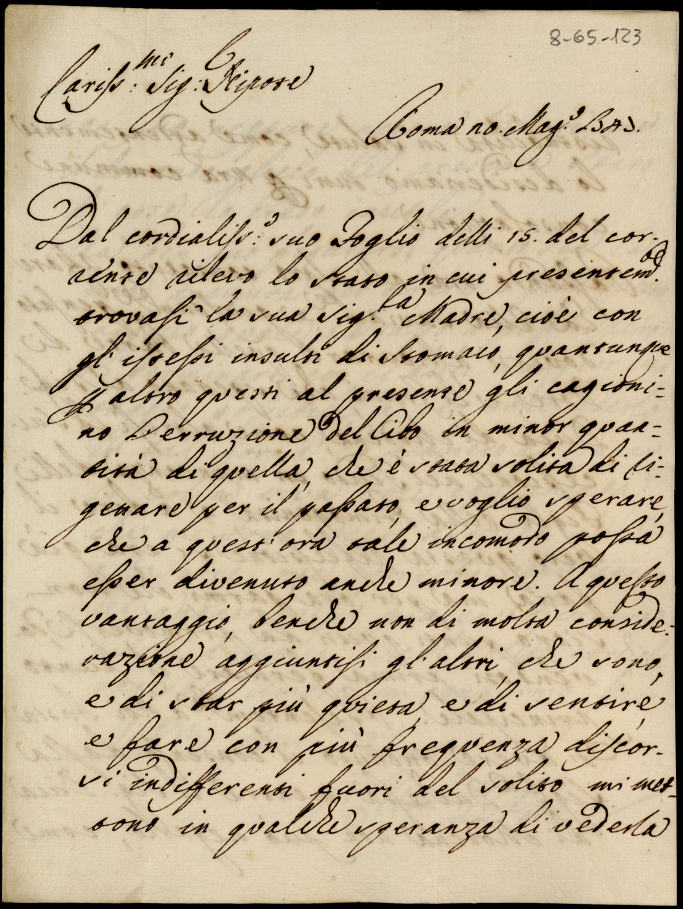 8-65-123
Cariss:mo Sig:r Nipote
Roma 20. Mag:o
Dal cordialiss:o suo Foglio delli 15. del cor-
rente rilevo lo stato in cui presentem:
trovasi la sua Sig:ra Madre, cioè con
gl'istessi insulti di Stomaco, quantunque
p altro questi al presente gli cagioni=
no l'erruzione del Cibo in minor quan=
tità di quella, che è stata solita di ri=
gettare per il passato, e voglio sperare,
che a quest'ora tale incomodo possa
esser divenuto anche minore. A questo
vantaggio, benche non di molta conside=
razione aggiuntisi gl'altri, che sono,
e di star più quieta, e di sentire,
e fare con più frequenza discor-
si indifferenti fuori del solito mi met-
tono in qualche speranza di vederla